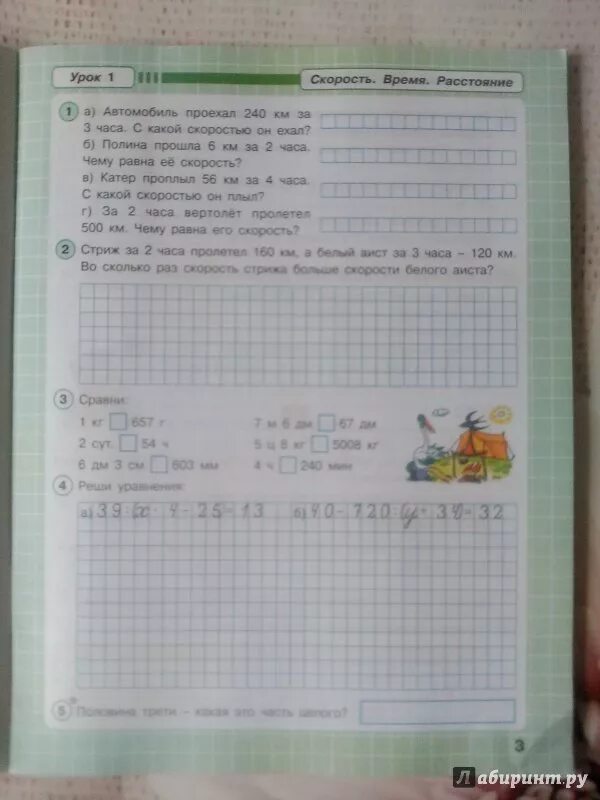 Урок 1
Скорость. Время. Расстояние
1 а) Автомобиль проехал 240 км за
3 часа. С какой скоростью он ехал?
б) Полина прошла 6 км за 2 часа.
Чему равна её скорость?
в) Катер проплыл 56 км за 4 часа.
С какой скоростью он плыл?
г) За 2 часа вертолёт пролетел
500 км. Чему равна его скорость?
2 Стриж за 2 часа пролетел 160 км, а белый аист за 3 часа – 120 км.
Во сколько раз скорость стрижа больше скорости белого аиста?
3 Сравни:
1 кг 657 г 7 м 6 дм 67 дм
2 сут. 54 ч 5 ц 8 кг 5008 кг
6 дм 3 см 603 мм 4 ч 240 мин
4 Реши уравнения:
а) 39 · 4 - 25 = 13 б) 40 - 720 : 34 = 32
5 Половина трети – какая это часть целого?
3
Лабиринт.ру